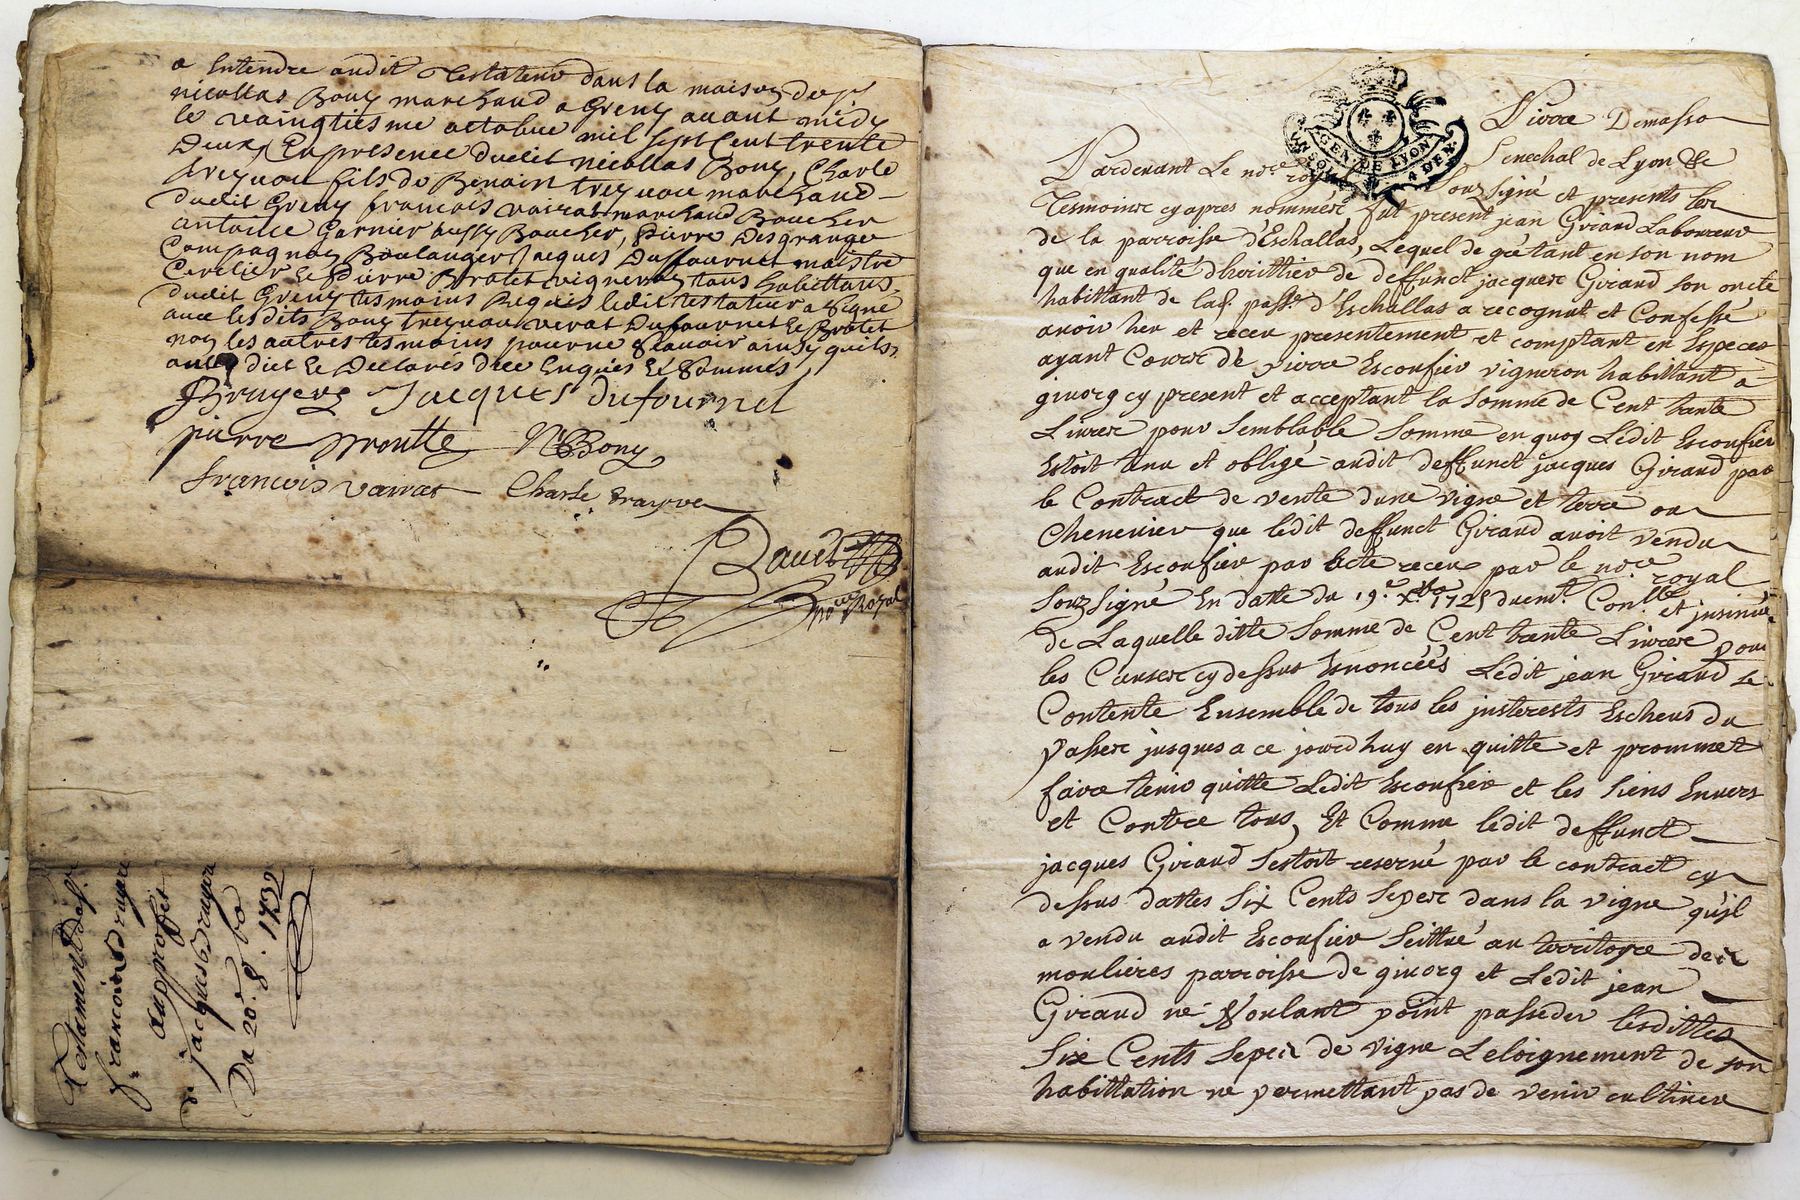 a Entendre audit Testateur dans la maison du sr
nicollas Bony marchand a Greny avant midy
le vaingtiesme octobre mil sept Cent trente
Deux, En presence dudit nicollas Bony, Charle
treyuou fils de Benoin treyuou marchand
dudit Greny francois vairat marchand Boucher
antoine Garnier aussy Boucher, pierre Desgranges
Compagnon Boulanger Jacques Duffournet maistre
Cordier Et pierre Brotet vigneron tous habittans
dudit Greny tesmoins Requis ledit testateur a signé
avec lesdits Bony treyuou verat Dufournet Et Brotet
non les autres tesmoins pour ne sçavoir ainsy quils
ont dict Et Declarés de ce Enquis Et sommés
Bruyere Jacques dufournel
pierre N Bony
francois vairat Charle
Nore Royal
Testament de sr
francois Bruyere
au proffit
de jacques Bruyere
Du 20e 8bre 1732
GEN DE LYON
4 DEN.
Pierre Demasso
Senechal de Lyon &c
Pardevant Le nore royal Souzsigné et presents les
Tesmoins cy apres nommés, fut present jean Giraud Laboureur
de la parroisse d'Eschallas, Lequel de gré tant en son nom
que en qualité d'herittier de deffunct jacques Giraud son oncle
habittant de lad. passe d'Eschallas a recognut et Confessé
avoir heu et receu presentement et comptant en Especes
ayant Cours de pierre Escoufier vigneron habittant a
givorg cy present et acceptant la Somme de Cent trante
Livres pour Semblable Somme en quoy Ledit Escoufier
Estoit tenu et obligé audit deffunct jacques Giraud par
le Contract de vente d'une vigne et terre ou
Chenevier que ledit deffunct Giraud avoit vendu
audit Escoufier par acte receu par le nore royal
Souzsigné En datte du 19e xbre 1725 duemt Conllé et insinué
de Laquelle ditte Somme de Cent trante Livres pour
les Causes cy dessus Esnoncéés Ledit jean Giraud Se
Contente Ensemble de tous les justerests Escheus du
passer jusques a ce jourdhuy en quitte et prommet
faire tenir quitte Ledit Escoufier et les Siens Envers
et Contre tous, Et Comme ledit deffunct
jacques Giraud Sestoit reservé par le contract cy
dessus dattes Six Cents Seper dans la vigne qu'il
a vendu audit Escoufier Scittué au territoyre des
moulieres parroisse de givorg et Ledit jean
Giraud ne Voulant point passeder lesdittes
Six Cents Seper de vigne L'eloignement de son
habittation ne permettant pas de venir cultiver